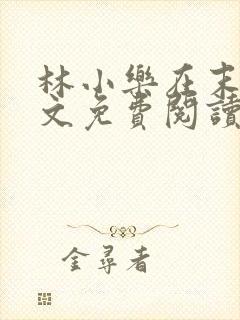 林小樂在末
文免費閱讀
金尋者